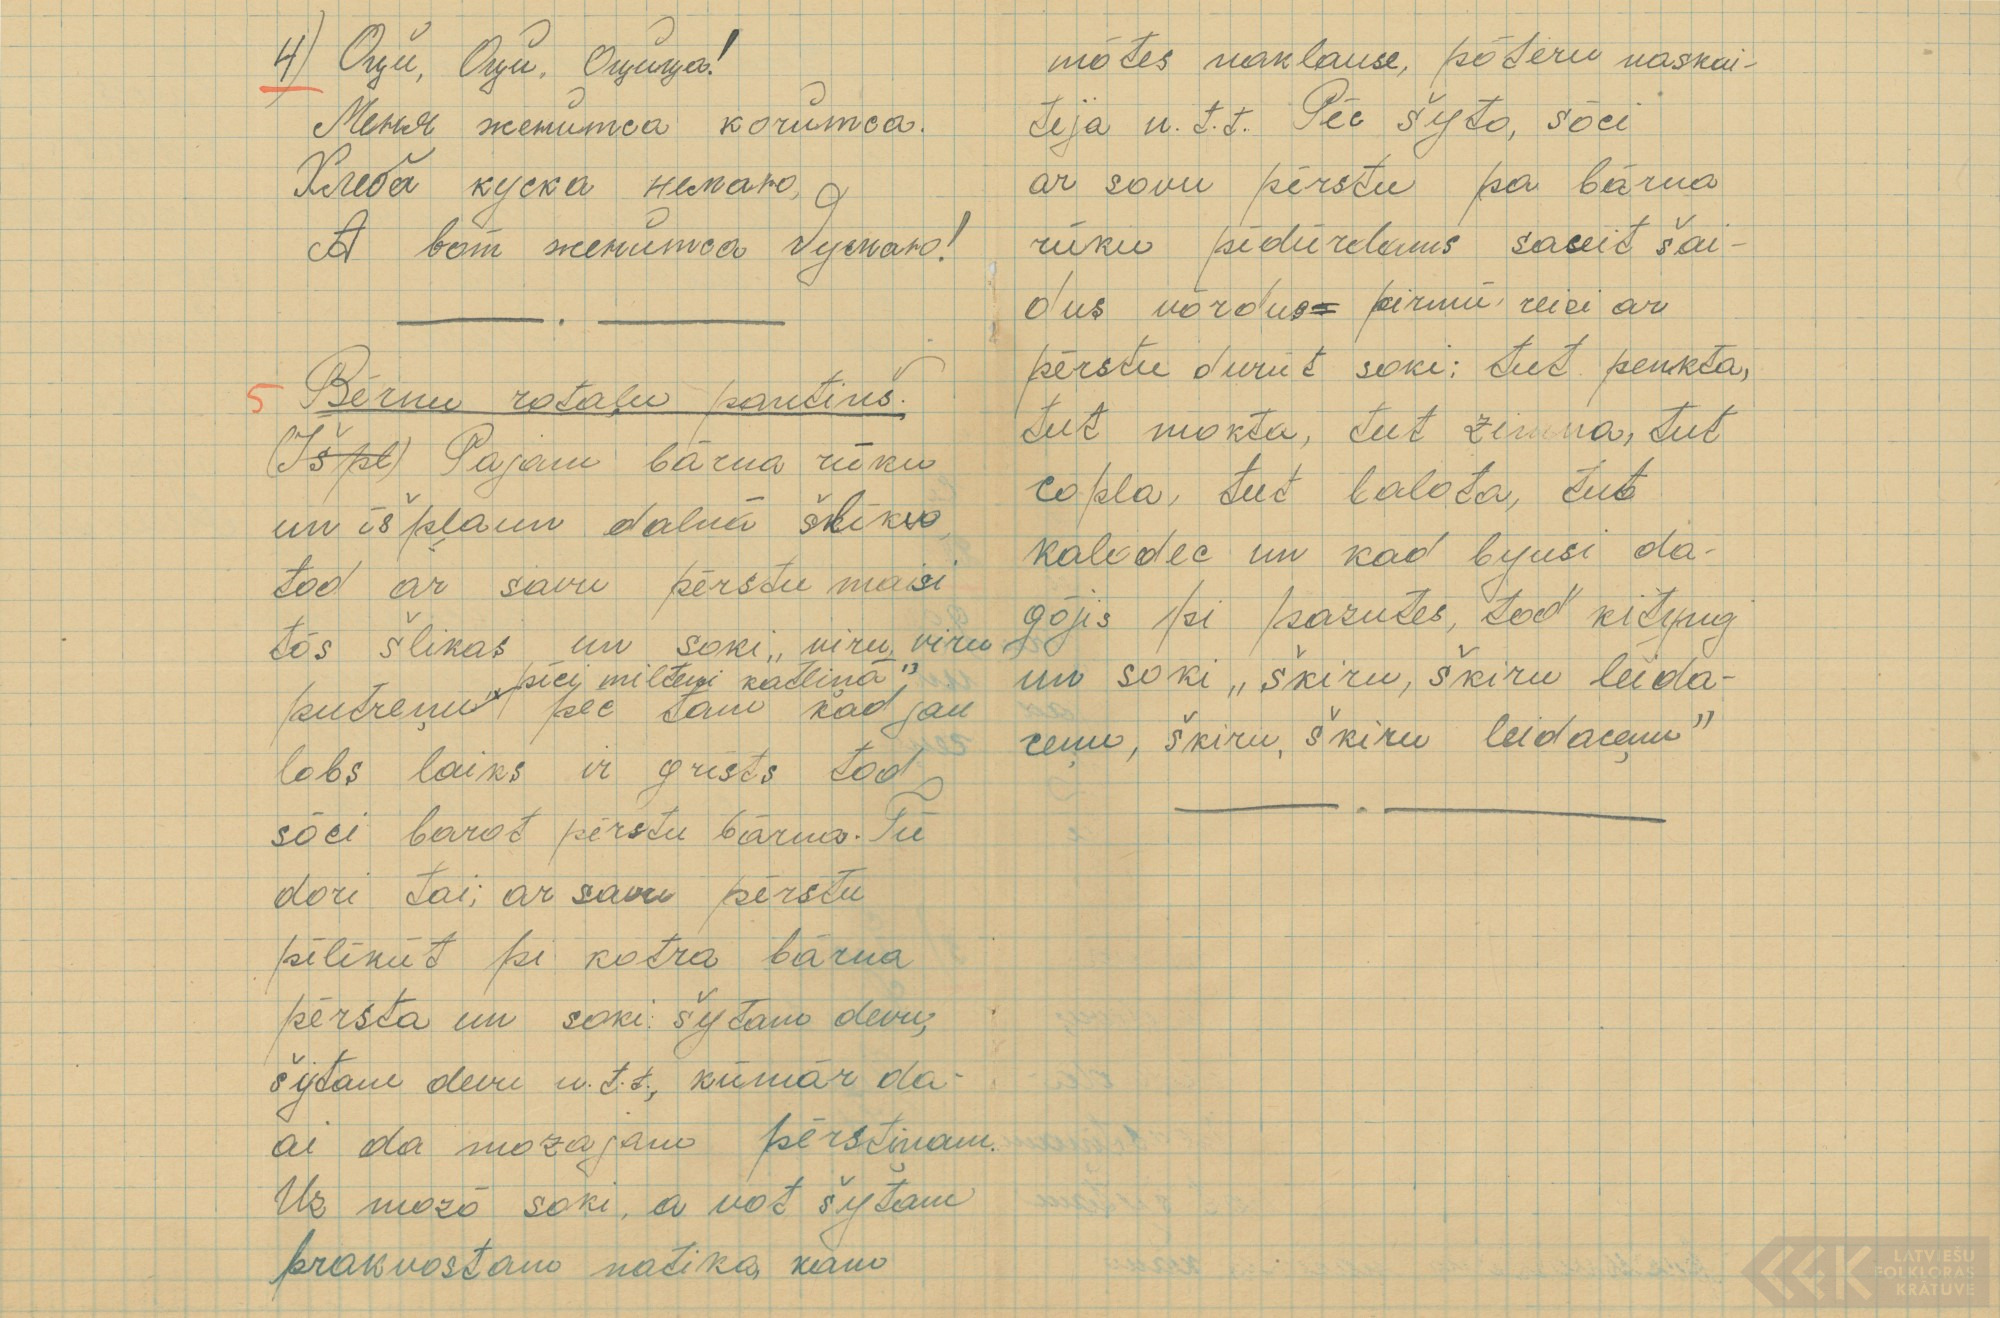 4) Оцй, Оцй, Оцйца!
Меня женитса кочитса.
Хлеба куска немаю,
А вот женитса думаю!
5 Bērnu rotaļu pantiņš.
(Iš pl) Pajam bārna rūku
un īšpļaun dalnā šlīkuo
tod ar savu pērstu maisi
tōs šlikas un soki „ viru, viru
putreņu" pīci milteņi katlinā",
pēc tam kad jau
lobs laiks ir grīsts tod
sōci barot pērstu bārna. Tū
dori tai; ar savu pērstu
pīlīkūt pi kotra bārna
pērsta un soki: šytam devu,
šytam devu u.t.t., kūmār da-
ai da mozajam pērstinam.
Uz mozō soki, a vot šytam
prakvostam natika, kam
mōtes naklause, pōteru naskai-
tija u.t.t. Pēc šyto, sōci
ar sovu pērstu pa bārna
rūku pīdūrdams saceit šai-
dus vōrdus= pirmū reizi ar
pērstu durūt soki: tut penkta,
tut mokta, tut zimna, tut
copla, tut balota, tut
kalodec un kad byusi da-
gōjis pi pazutes, tod kityng
un soki „ škiru, škiru leida-
ceņu, škiru, škiru leidaceņu"
LATVIEŠU
FOLKLORAS
KRĀTUVE